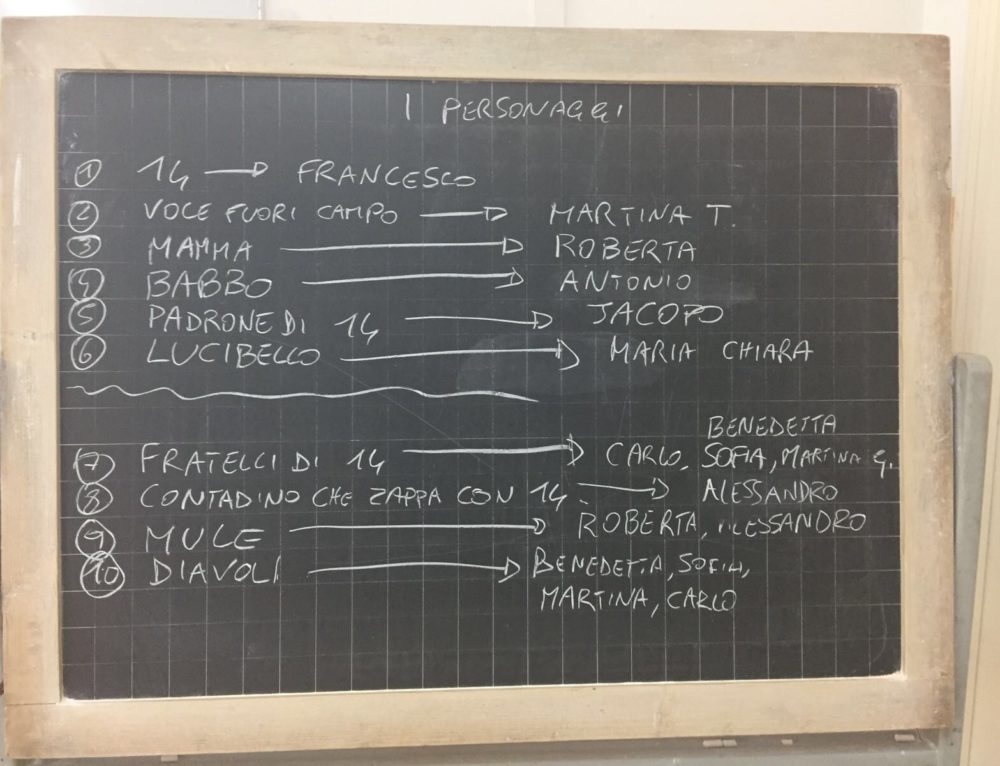 I PERSONAGGI
1 14 → FRANCESCO
2 VOCE FUORI CAMPO → MARTINA T.
3 MAMMA → ROBERTA
4 BABBO → ANTONIO
5 PADRONE DI 14 → JACOPO
6 LUCIBELLO → MARIA CHIARA
BENEDETTA
7 FRATELLI DI 14 → CARLO, SOFIA, MARTINA G.
8 CONTADINO CHE ZAPPA CON 14 → ALESSANDRO
9 MULE → ROBERTA, ALESSANDRO
10 DIAVOLI → BENEDETTA, SOFIA,
MARTINA, CARLO